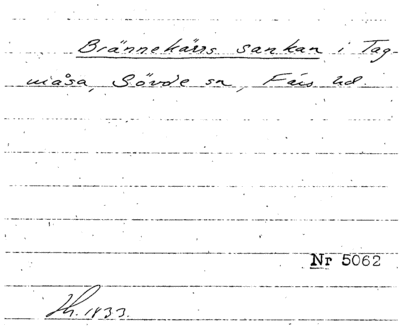 Brännekärrs sankan i Tag-
måsa, Sövde sn, Färs hd.
Nr 5062
1933.